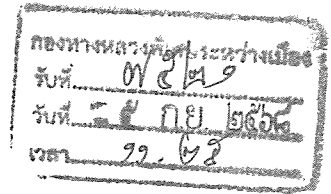 กองทางหลวงพิเศษระหว่างเมือง
รับที่ ๗๕๒๑
วันที่ - ๕ ก.ย. ๒๕๖๘
เวลา ๑๑.๒๕